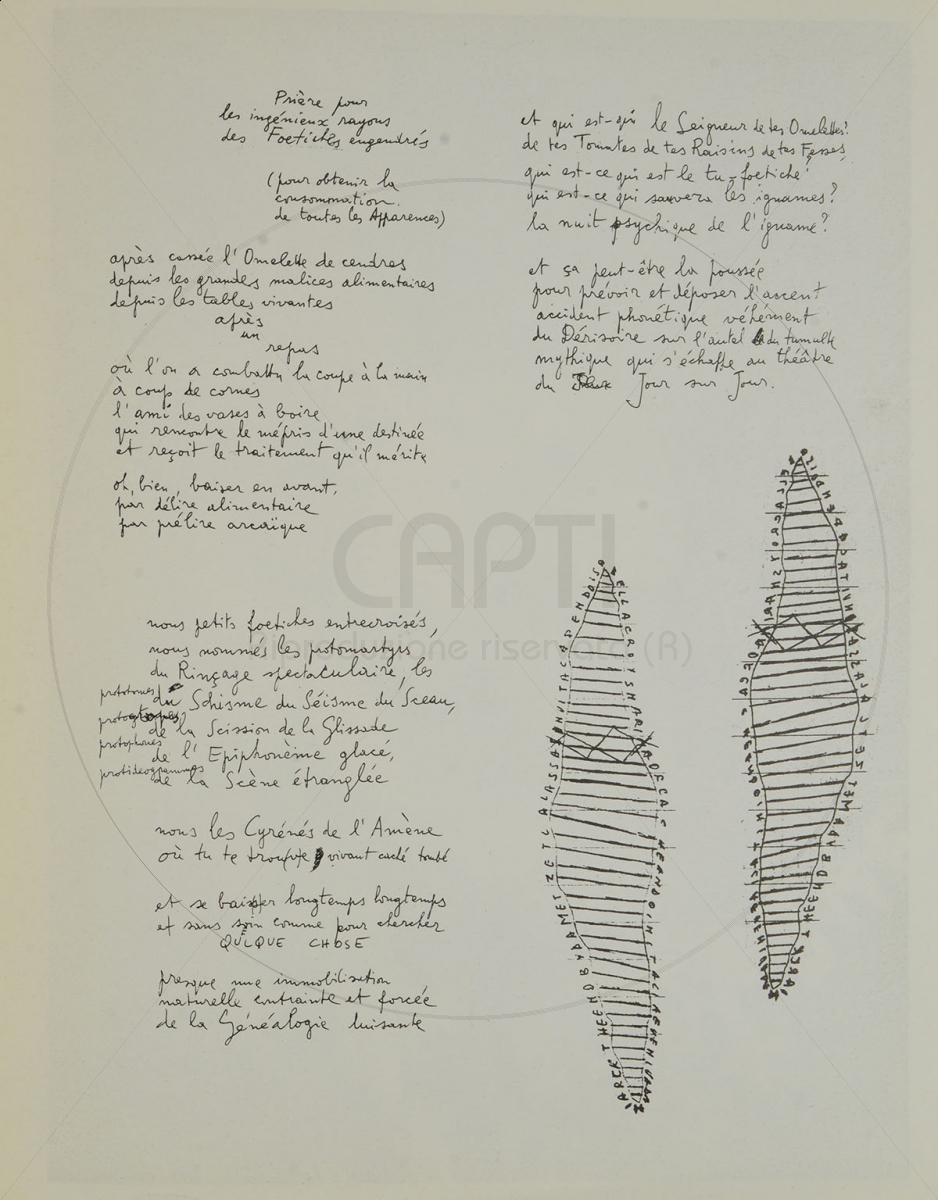 Prière pour
les ingénieux rayons
des Foetiches engendrés
(pour obtenir la
consommation
de toutes les Apparences)
après cassée l'Omelette de cendres
depuis les grandes malices alimentaires
depuis les tables vivantes
après
un
repas
où l'on a combattu la coupe à la main
à coup de cornes
l'ami des vases à boire
qui rencontre le mépris d'une destinée
et reçoit le traitement qu'il mérite
oh, bien, baiser en avant,
par délire alimentaire
par prélire arcaïque
nous petits foetiches entrecroisés,
nous nommés les protomartyrs
du Rinçage spectaculaire, les
prototomes du Schisme du Séisme du Sceau,
de la Scission de la Glissade
protophones de l'Epiphonème glacé,
protidéogrammes de la Scène étranglée
nous les Cyrénés de l'Amène
où tu te trouve vivant caché tombé
et se baiser longtemps longtemps
et sans soin comme pour chercher
QUELQUE CHOSE
presque une immobilisation
naturelle contrainte et forcée
de la Généalogie luisante
et qui est-qui le Seigneur de tes Omelettes?
de tes Tomates de tes Raisins de tes Fesses,
qui est-ce qui est le tu-foetiche?
qui est-ce qui sauvera les ignames?
la nuit psychique de l'igname?
et ça peut-être la poussée
pour prévoir et déposer l'accent
accident phonétique véhément
du Dérisoire sur l'autel du tumulte
mythique qui s'échappe au théâtre
du Jour sur Jour.
CAPTI
riproduzione riservata (R)